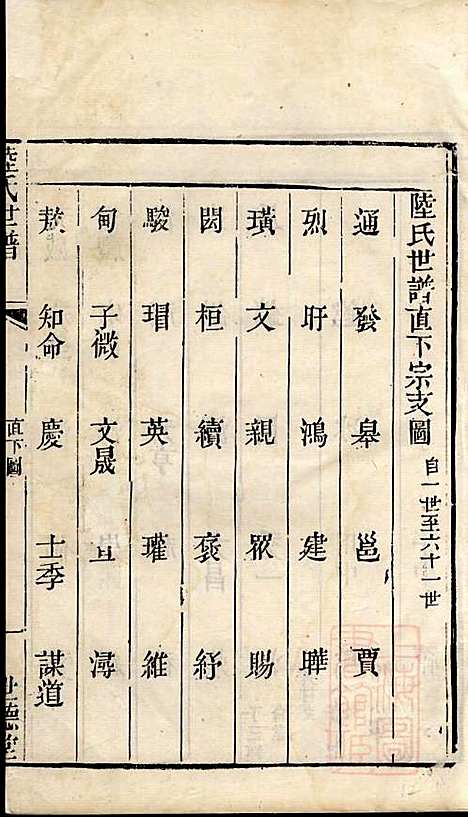 陸氏世譜直下宗支圖 自一世至六十一世
通 發 皋 邕 賈
烈 盱 鴻 建 曄
璜 文 親 眾 賜
閎 桓 續 褒 紓
駿 瑁 英 瓘 維
甸 子微 文晟 亘 潯
知命 慶 士季 謀道
陸氏世譜 直下圖 一 世德堂